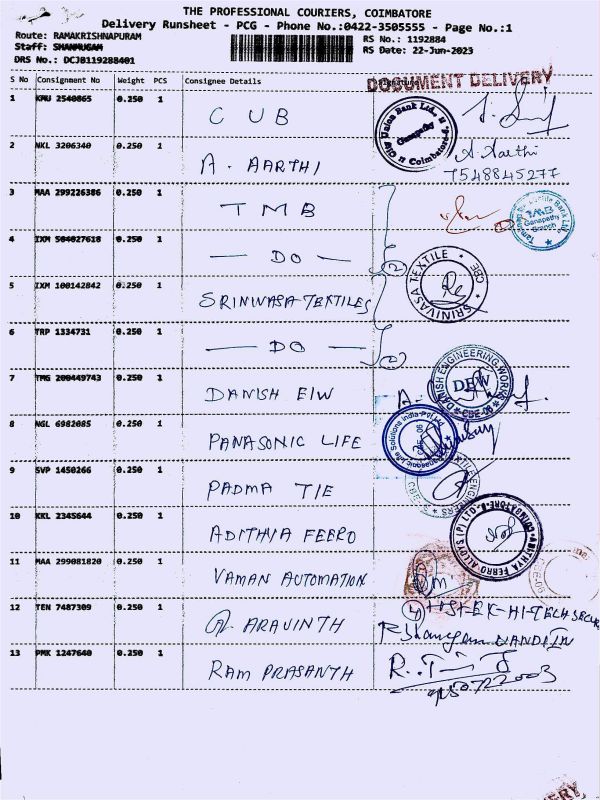 THE PROFESSIONAL COURIERS, COIMBATORE
Delivery Runsheet - PCG - Phone No.:0422-3505555 - Page No.:1
Route: RAMAKRISHNAPURAM
RS No.: 1192884
Staff: SHANMUGAM
RS Date: 22-Jun-2023
DRS No.: DCJB119288401
S No Consignment No Weight PCS Consignee Details
DOCUMENT DELIVERY
1 KMU 2540865 0.250 1 CUB
City Union Bank Ltd., Ganapathy Coimbatore
2 NKL 3206340 0.250 1 A. AARTHI A. Aarthi
7548845277
3 MAA 299226386 0.250 1 TMB
Ganapathy Branch
4 IXM 504027618 0.250 1 — DO — 2
5 IXM 100142842 0.250 1 SRINIVASA TEXTILES
SRINIVASA TEXTILE CBE
6 TRP 1334731 0.250 1 — DO —
7 TMG 200449743 0.250 1 DANISH E/W
DANISH ENGINEERING WORKS DEW CBE-06
8 NGL 6982085 0.250 1 PANASONIC LIFE
Panasonic Life Solutions India Pvt Ltd
9 SVP 1450266 0.250 1 PADMA TIE
10 KKL 2345644 0.250 1 ADITHYA FERRO
ADITHYA FERRO ALLOYS (P) LTD COIMBATORE
11 MAA 299081820 0.250 1 VAMAN AUTOMATION
12 TEN 7487309 0.250 1 ARAVINTH
13 PMK 1247640 0.250 1 RAM PRASANTH